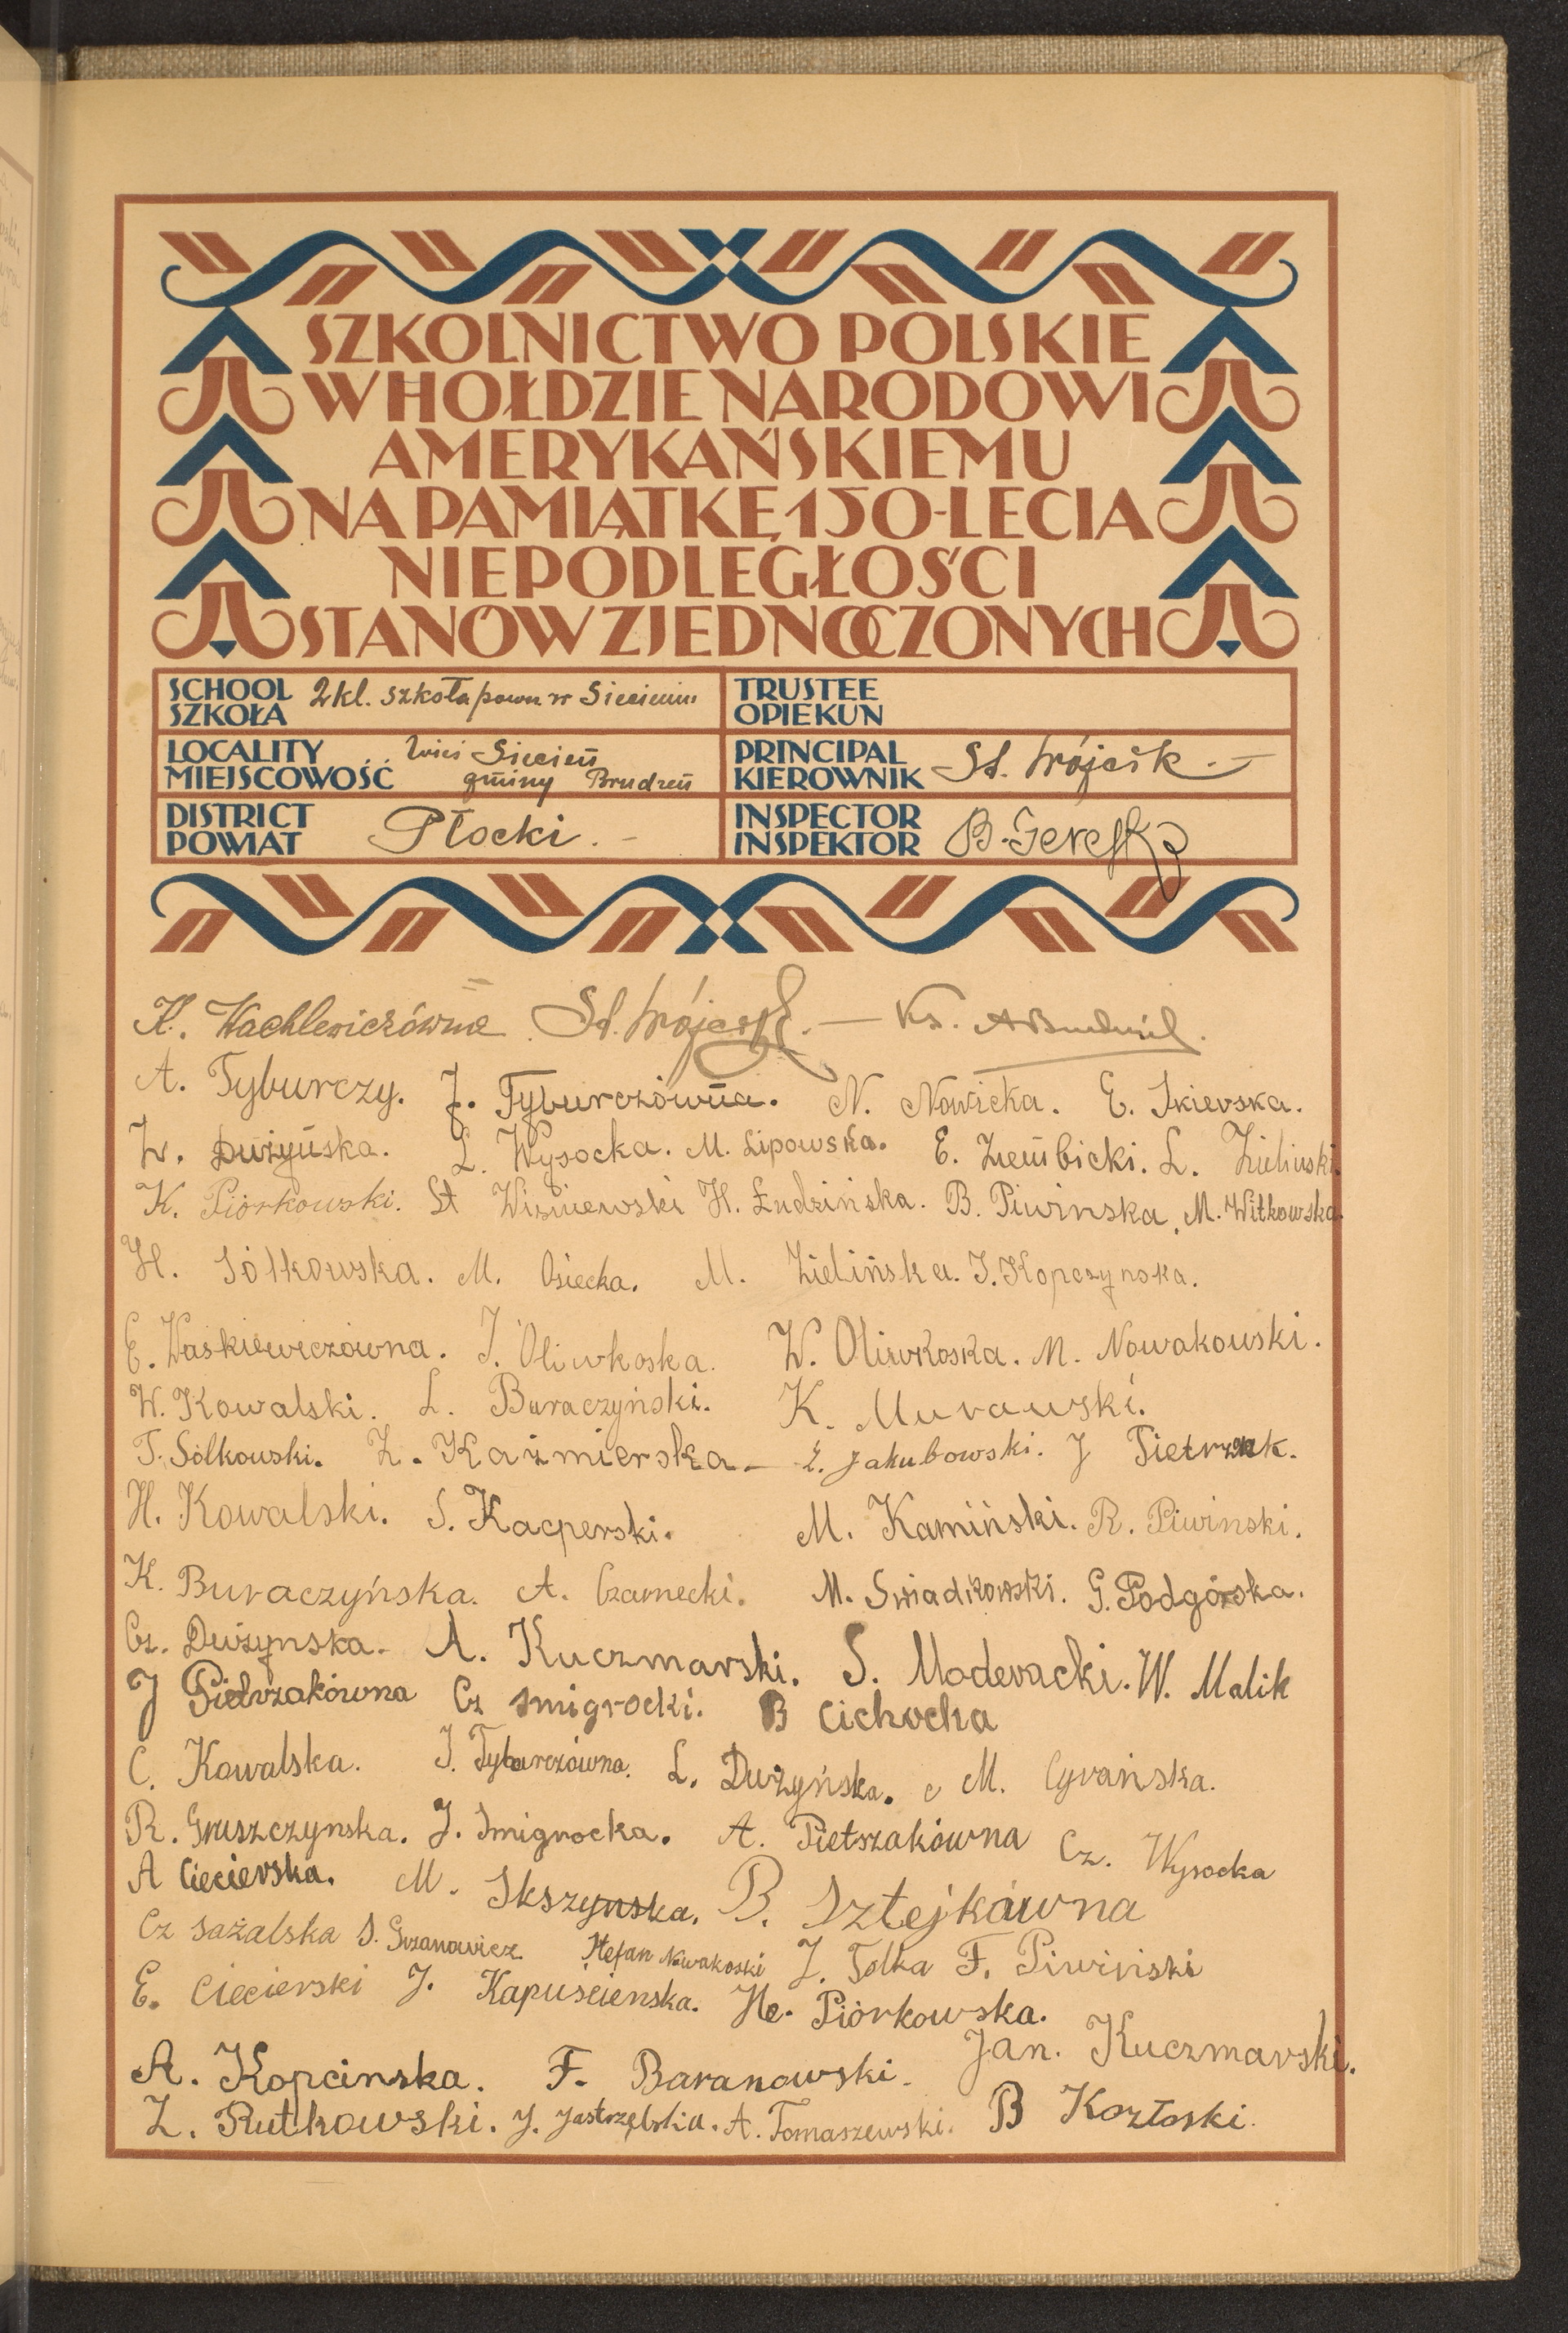 SZKOLNICTWO POLSKIE
W HOŁDZIE NARODOWI
AMERYKAŃSKIEMU
NA PAMIĄTKĘ 150-LECIA
NIEPODLEGŁOŚCI
STANÓW ZJEDNOCZONYCH
SCHOOL
SZKOŁA 2 kl. szkoła pown w Siecieniu
TRUSTEE
OPIEKUN
LOCALITY
MIEJSCOWOŚĆ Wieś Siecień
gminy Brudzeń
PRINCIPAL
KIEROWNIK St. Wójcik
DISTRICT
POWIAT Płocki.
INSPECTOR
INSPEKTOR B.
K. Wachlewiczówna St. Ks.
A. Tyburczy. J. Tyburczówna. N. Nowicka. E. Skierska.
W. Dużyńska. L. Wysocka. M. Lipowska. E. Ziembicki. L. Zieliński
K. Piórkowski. St Wiśniewski H. Łudzińska. B. Piwinska. M. Witkowska.
H. Sółkowska. M. Osiecka. M. Zielińska. J. Kopczynska.
E. Waśkiewiczówna. J. Oliwkoska. W. Oliwkoska. M. Nowakowski.
W. Kowalski. L. Buraczyński. K. Murawski.
T. Sólkowski. Z. Kaźmierska. Z. Jakubowski. J Pietrzak.
H. Kowalski. S. Kacperski. M. Kamiński. R. Piwinski.
K. Buraczyńska. A. Czarnecki. M. Swiadkowski. G. Podgórska.
Cz. Dużynska. A. Kuczmarski. S. Moderacki. W. Malik
J Pietrzakówna Cz Smigrocki. B Cichocka
C. Kowalska. J. Tyburczówna. L. Dużyńska. M. Cyrańska.
R. Gruszczynska. J. Smigrocka. A. Pietszakówna Cz. Wysocka
A Ciecierska. M. Skszynska. B. Sztejkówna
Cz Sażalska S. Grzanowicz Stefan Nowakoski J. Tolka F. Piwiński
E. Ciecierski J. Kapuścienska. He. Piórkowska.
Jan. Kuczmarski.
A. Kopcinska. F. Baranowski.
Z. Rutkowski. J. Jastrzębska. A. Tomaszewski. B Kozłoski.